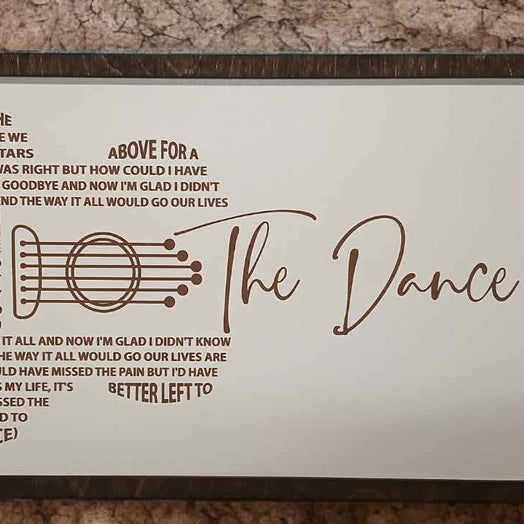 HE
E WE
TARS
ABOVE FOR A
WAS RIGHT BUT HOW COULD I HAVE
GOODBYE AND NOW I'M GLAD I DIDN'T
END THE WAY IT ALL WOULD GO OUR LIVES
The Dance
IT ALL AND NOW I'M GLAD I DIDN'T KNOW
HE WAY IT ALL WOULD GO OUR LIVES ARE
ULD HAVE MISSED THE PAIN BUT I'D HAVE
S MY LIFE, IT'S
BETTER LEFT TO
SSED THE
D TO
CE)